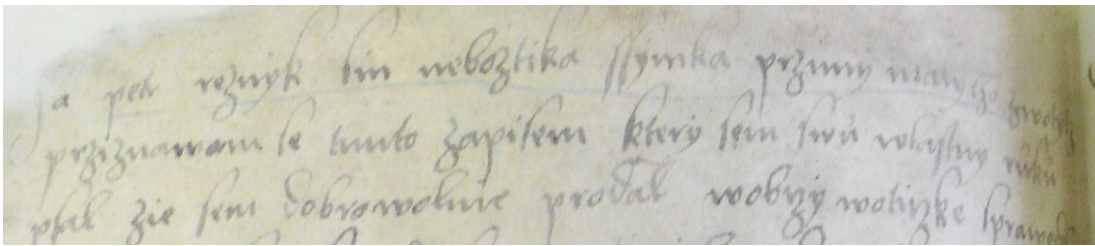 Ja petr rzeznyk sin neboztika ssymka przimy maly
przyznawam se timto zapisem ktery sem swu wlastny ruku
psal zie sem dobrowolnie prodal wobczy woticzke